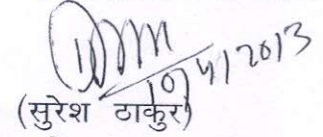 10/4/2013
(सुरेश ठाकुर)